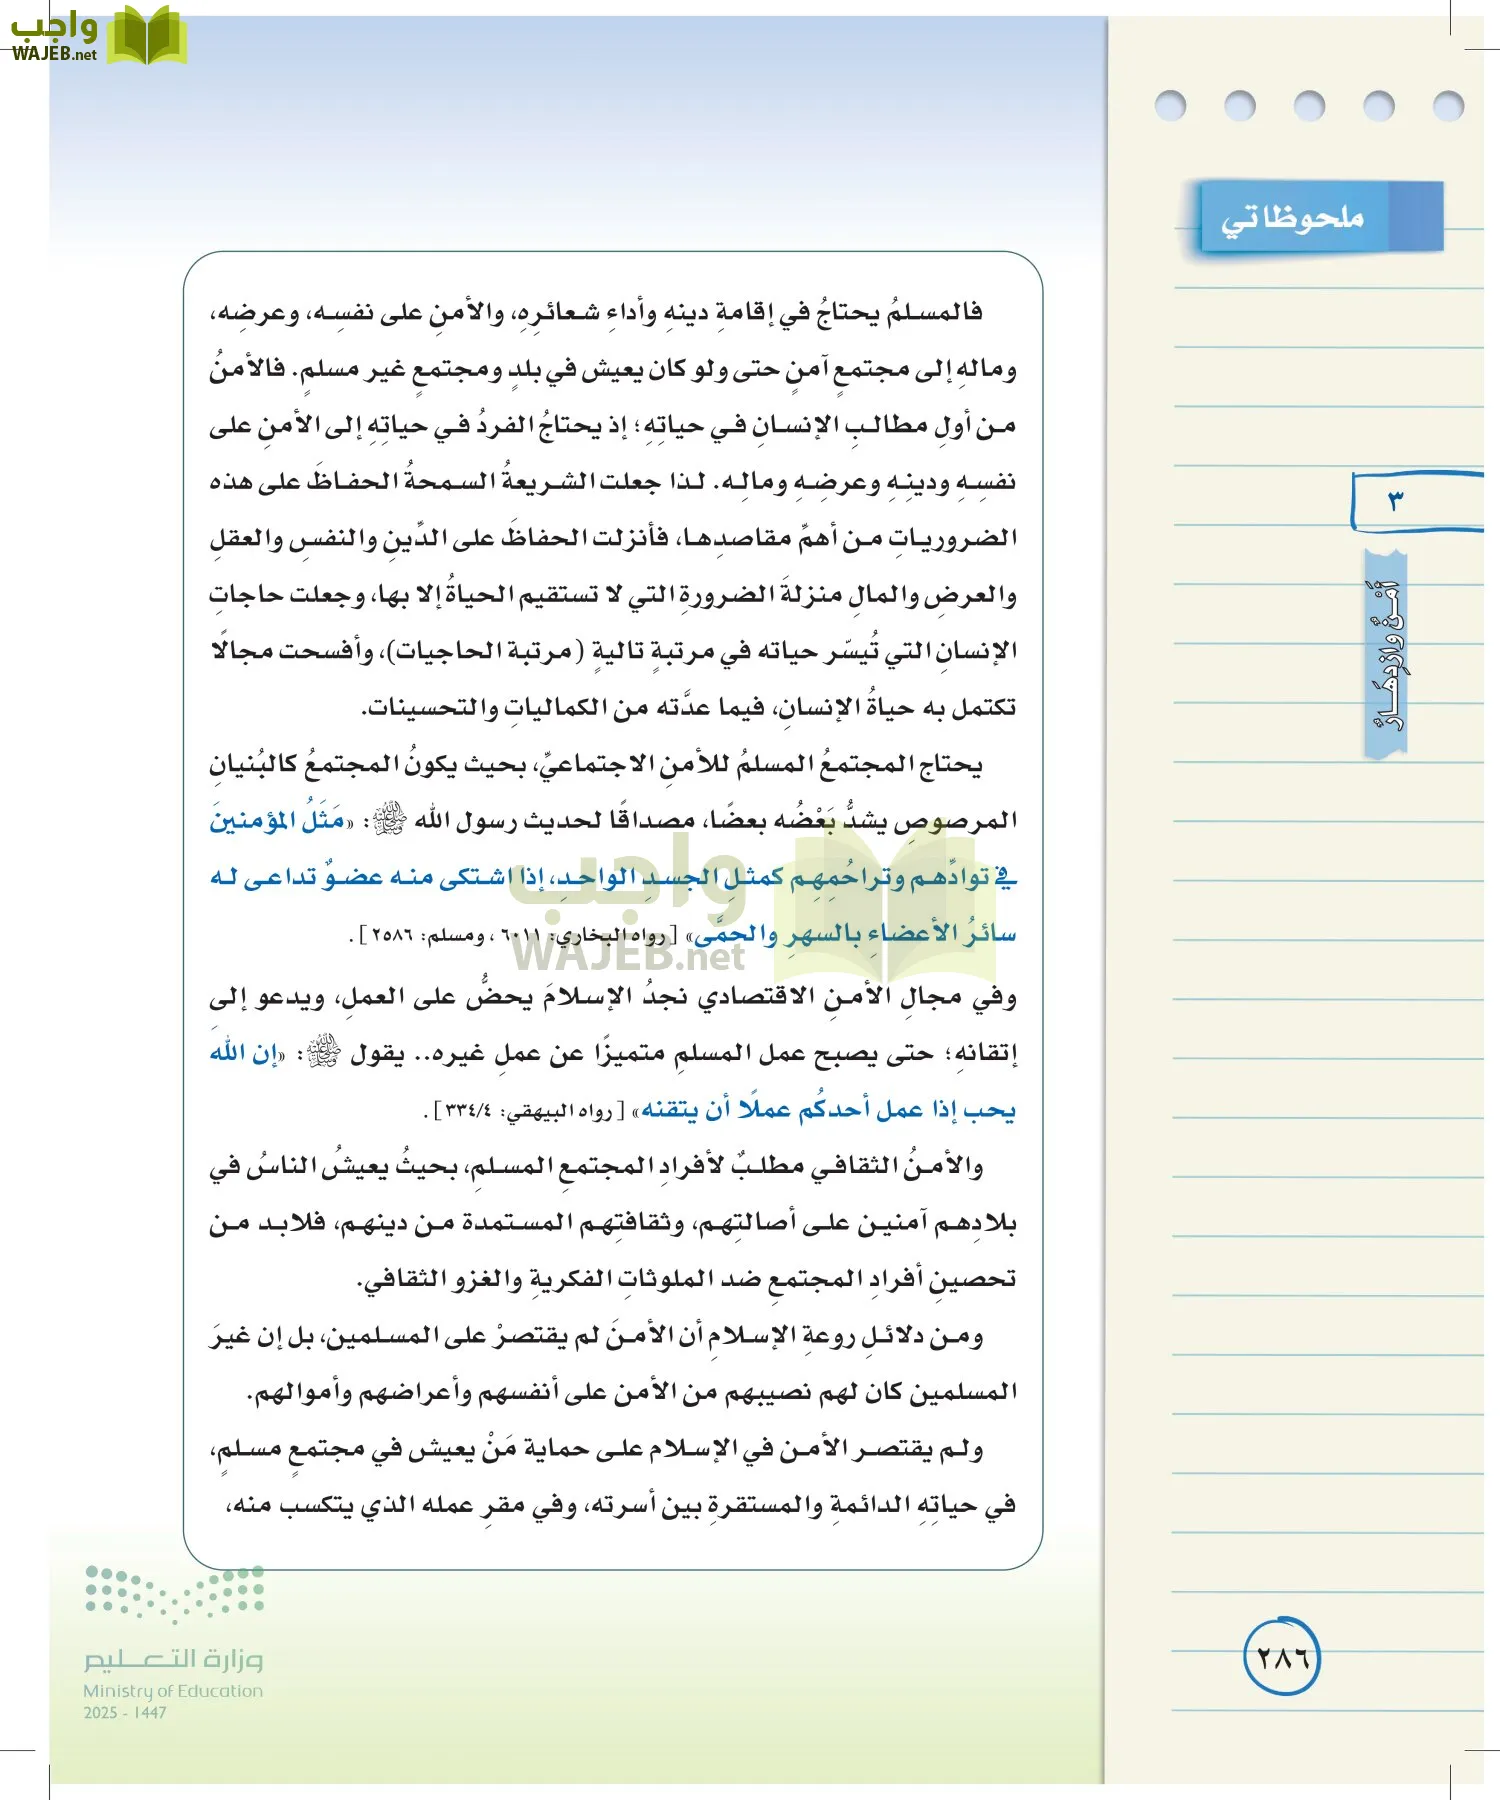 واجب
WAJEB.net
ملحوظاتي
٣
أمْنٌ وازدِهَارٌ
فالمسلمُ يحتاجُ في إقامةِ دينهِ وأداءِ شعائرِهِ، والأمنِ على نفسِه، وعرضِه،
ومالهِ إلى مجتمعٍ آمنٍ حتى ولو كان يعيش في بلدٍ ومجتمعٍ غير مسلمٍ. فالأمنُ
من أولِ مطالبِ الإنسانِ في حياتِهِ؛ إذ يحتاجُ الفردُ في حياتِهِ إلى الأمنِ على
نفسِهِ ودينِهِ وعرضِهِ ومالِه. لذا جعلت الشريعةُ السمحةُ الحفاظَ على هذه
الضرورياتِ من أهمِّ مقاصدِها، فأنزلت الحفاظَ على الدِّينِ والنفسِ والعقلِ
والعرضِ والمالِ منزلةَ الضرورةِ التي لا تستقيم الحياةُ إلا بها، وجعلت حاجاتِ
الإنسانِ التي تُيسّر حياته في مرتبةٍ تاليةٍ (مرتبة الحاجيات)، وأفسحت مجالًا
تكتمل به حياةُ الإنسانِ، فيما عدَّته من الكمالياتِ والتحسينات.
يحتاج المجتمعُ المسلمُ للأمنِ الاجتماعيِّ، بحيث يكونُ المجتمعُ كالبُنيانِ
المرصوصِ يشدُّ بَعْضُه بعضًا، مصداقًا لحديث رسول الله ﷺ: «مَثَلُ المؤمنينَ
في توادِّهم وتراحُمِهِم كمثلِ الجسدِ الواحدِ، إذا اشتكى منه عضوٌ تداعى له
سائرُ الأعضاءِ بالسهرِ والحمَّى» [رواه البخاري: ٦٠١١، ومسلم: ٢٥٨٦].
وفي مجالِ الأمنِ الاقتصادي نجدُ الإسلامَ يحضُّ على العملِ، ويدعو إلى
إتقانهِ؛ حتى يصبح عمل المسلمِ متميزًا عن عملِ غيره.. يقول ﷺ: «إن اللهَ
يحب إذا عمل أحدكُم عملًا أن يتقنه» [رواه البيهقي: ٣٣٤/٤].
والأمنُ الثقافي مطلبٌ لأفرادِ المجتمعِ المسلمِ، بحيثُ يعيشُ الناسُ في
بلادِهم آمنين على أصالتِهم، وثقافتِهم المستمدة من دينهم، فلابد من
تحصينِ أفرادِ المجتمعِ ضد الملوثاتِ الفكريةِ والغزو الثقافي.
ومن دلائلِ روعةِ الإسلامِ أن الأمنَ لم يقتصرْ على المسلمين، بل إن غيرَ
المسلمين كان لهم نصيبهم من الأمن على أنفسهم وأعراضهم وأموالهم.
ولم يقتصر الأمن في الإسلام على حماية مَنْ يعيش في مجتمعٍ مسلمٍ،
في حياتِهِ الدائمةِ والمستقرةِ بين أسرته، وفي مقرِ عمله الذي يتكسب منه،
واجب
WAJEB.net
وزارة التعليم
Ministry of Education
2025 - 1447
٢٨٦